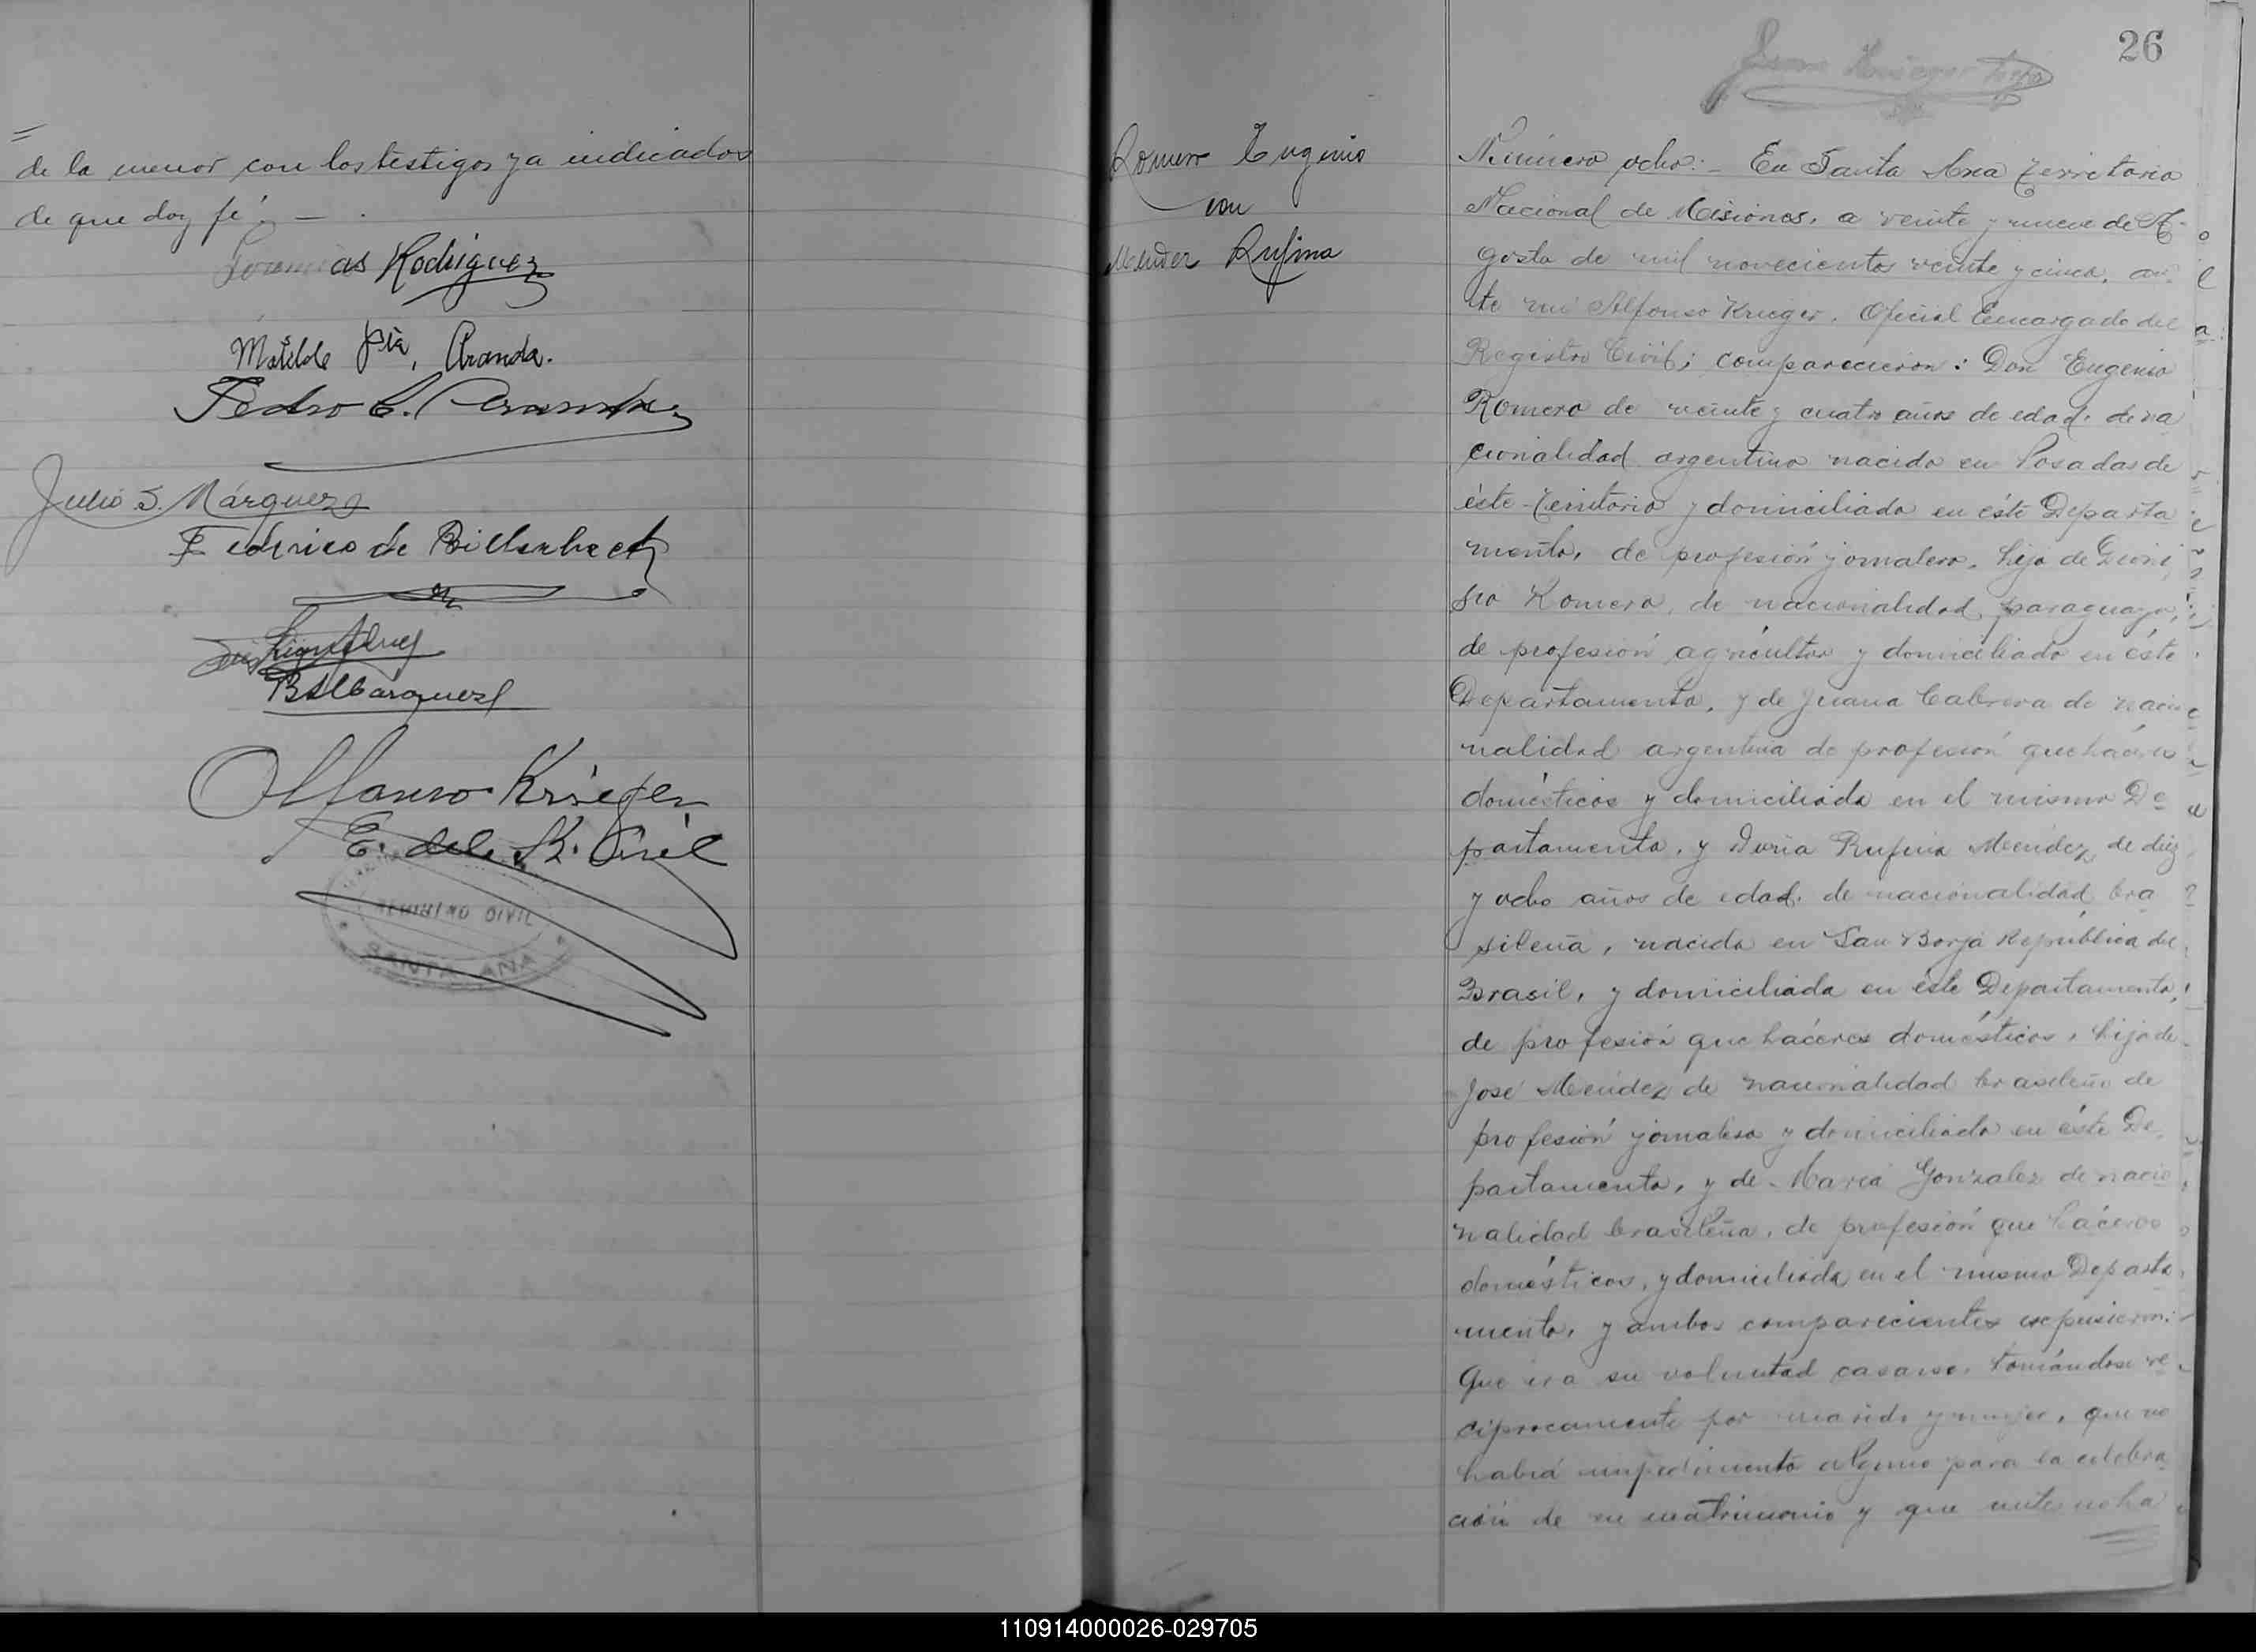 de la menor con los testigos ya indicados
de que doy fé. —
as Rodriguez
Matilde Aranda.
Pedro C.
Julio S. Márquez
Federico de Billerbeck
B Albarquez
Alfonso Krieger
E. del R. Civil
REGISTRO CIVIL
SANTA ANA
26
Romero Eugenio
con
Mendez Rufina
Número ocho:- En Santa Ana Territorio
Nacional de Misiones, a veinte y nueve de A-
gosto de mil novecientos veinte y cinco, an
te mi Alfonso Krieger, Oficial Encargado del
Registro Civil; comparecieron: Don Eugenio
Romero de veinte y cuatro años de edad, de na
cionalidad argentino nacido en Posadas de
éste Territorio y domiciliado en éste Departa
mento, de profesión jornalero, hijo de Dioni
sio Romero, de nacionalidad paraguayo,
de profesión agricultor y domiciliado en éste
Departamento, y de Juana Cabrera de nacio
nalidad argentina de profesión quehaceres
domésticos y domiciliada en el mismo De
partamento, y Doña Rufina Mendez, de diez
y ocho años de edad, de nacionalidad bra
sileña, nacida en San Borja República del
Brasil, y domiciliada en éste Departamento,
de profesión que háceres domésticos, hija de
José Mendez de nacionalidad brasileño de
profesión jornalero y domiciliado en éste De
partamento, y de María Gonzalez de nacio
nalidad brasileña, de profesión que háceres
domésticos, y domiciliada en el mismo Departa
mento, y ambos comparecientes expusieron:
Que era su voluntad casarse, tomándose re
ciprocamente por marido y mujer, que no
habia impedimento alguno para la celebra
ción de su matrimonio y que
110914000026-029705